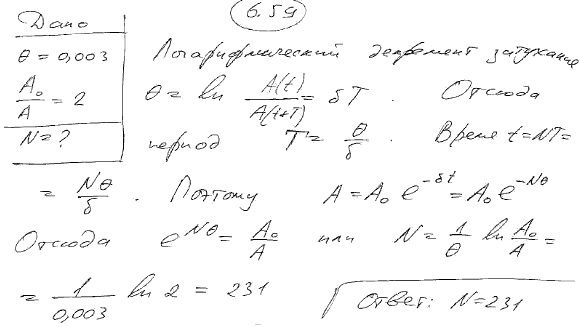 6.59
Дано
θ = 0,003
A₀/A = 2
N = ?
Логарифмический декремент затухания
θ = ln A(t)/A(t+T) = δT. Отсюда
период T = θ/δ. Время t = NT =
= Nθ/δ. Поэтому A = A₀ e^(-δt) = A₀ e^(-Nθ)
Отсюда e^(Nθ) = A₀/A или N = 1/θ ln A₀/A =
= 1/0,003 ln 2 = 231 Ответ: N = 231